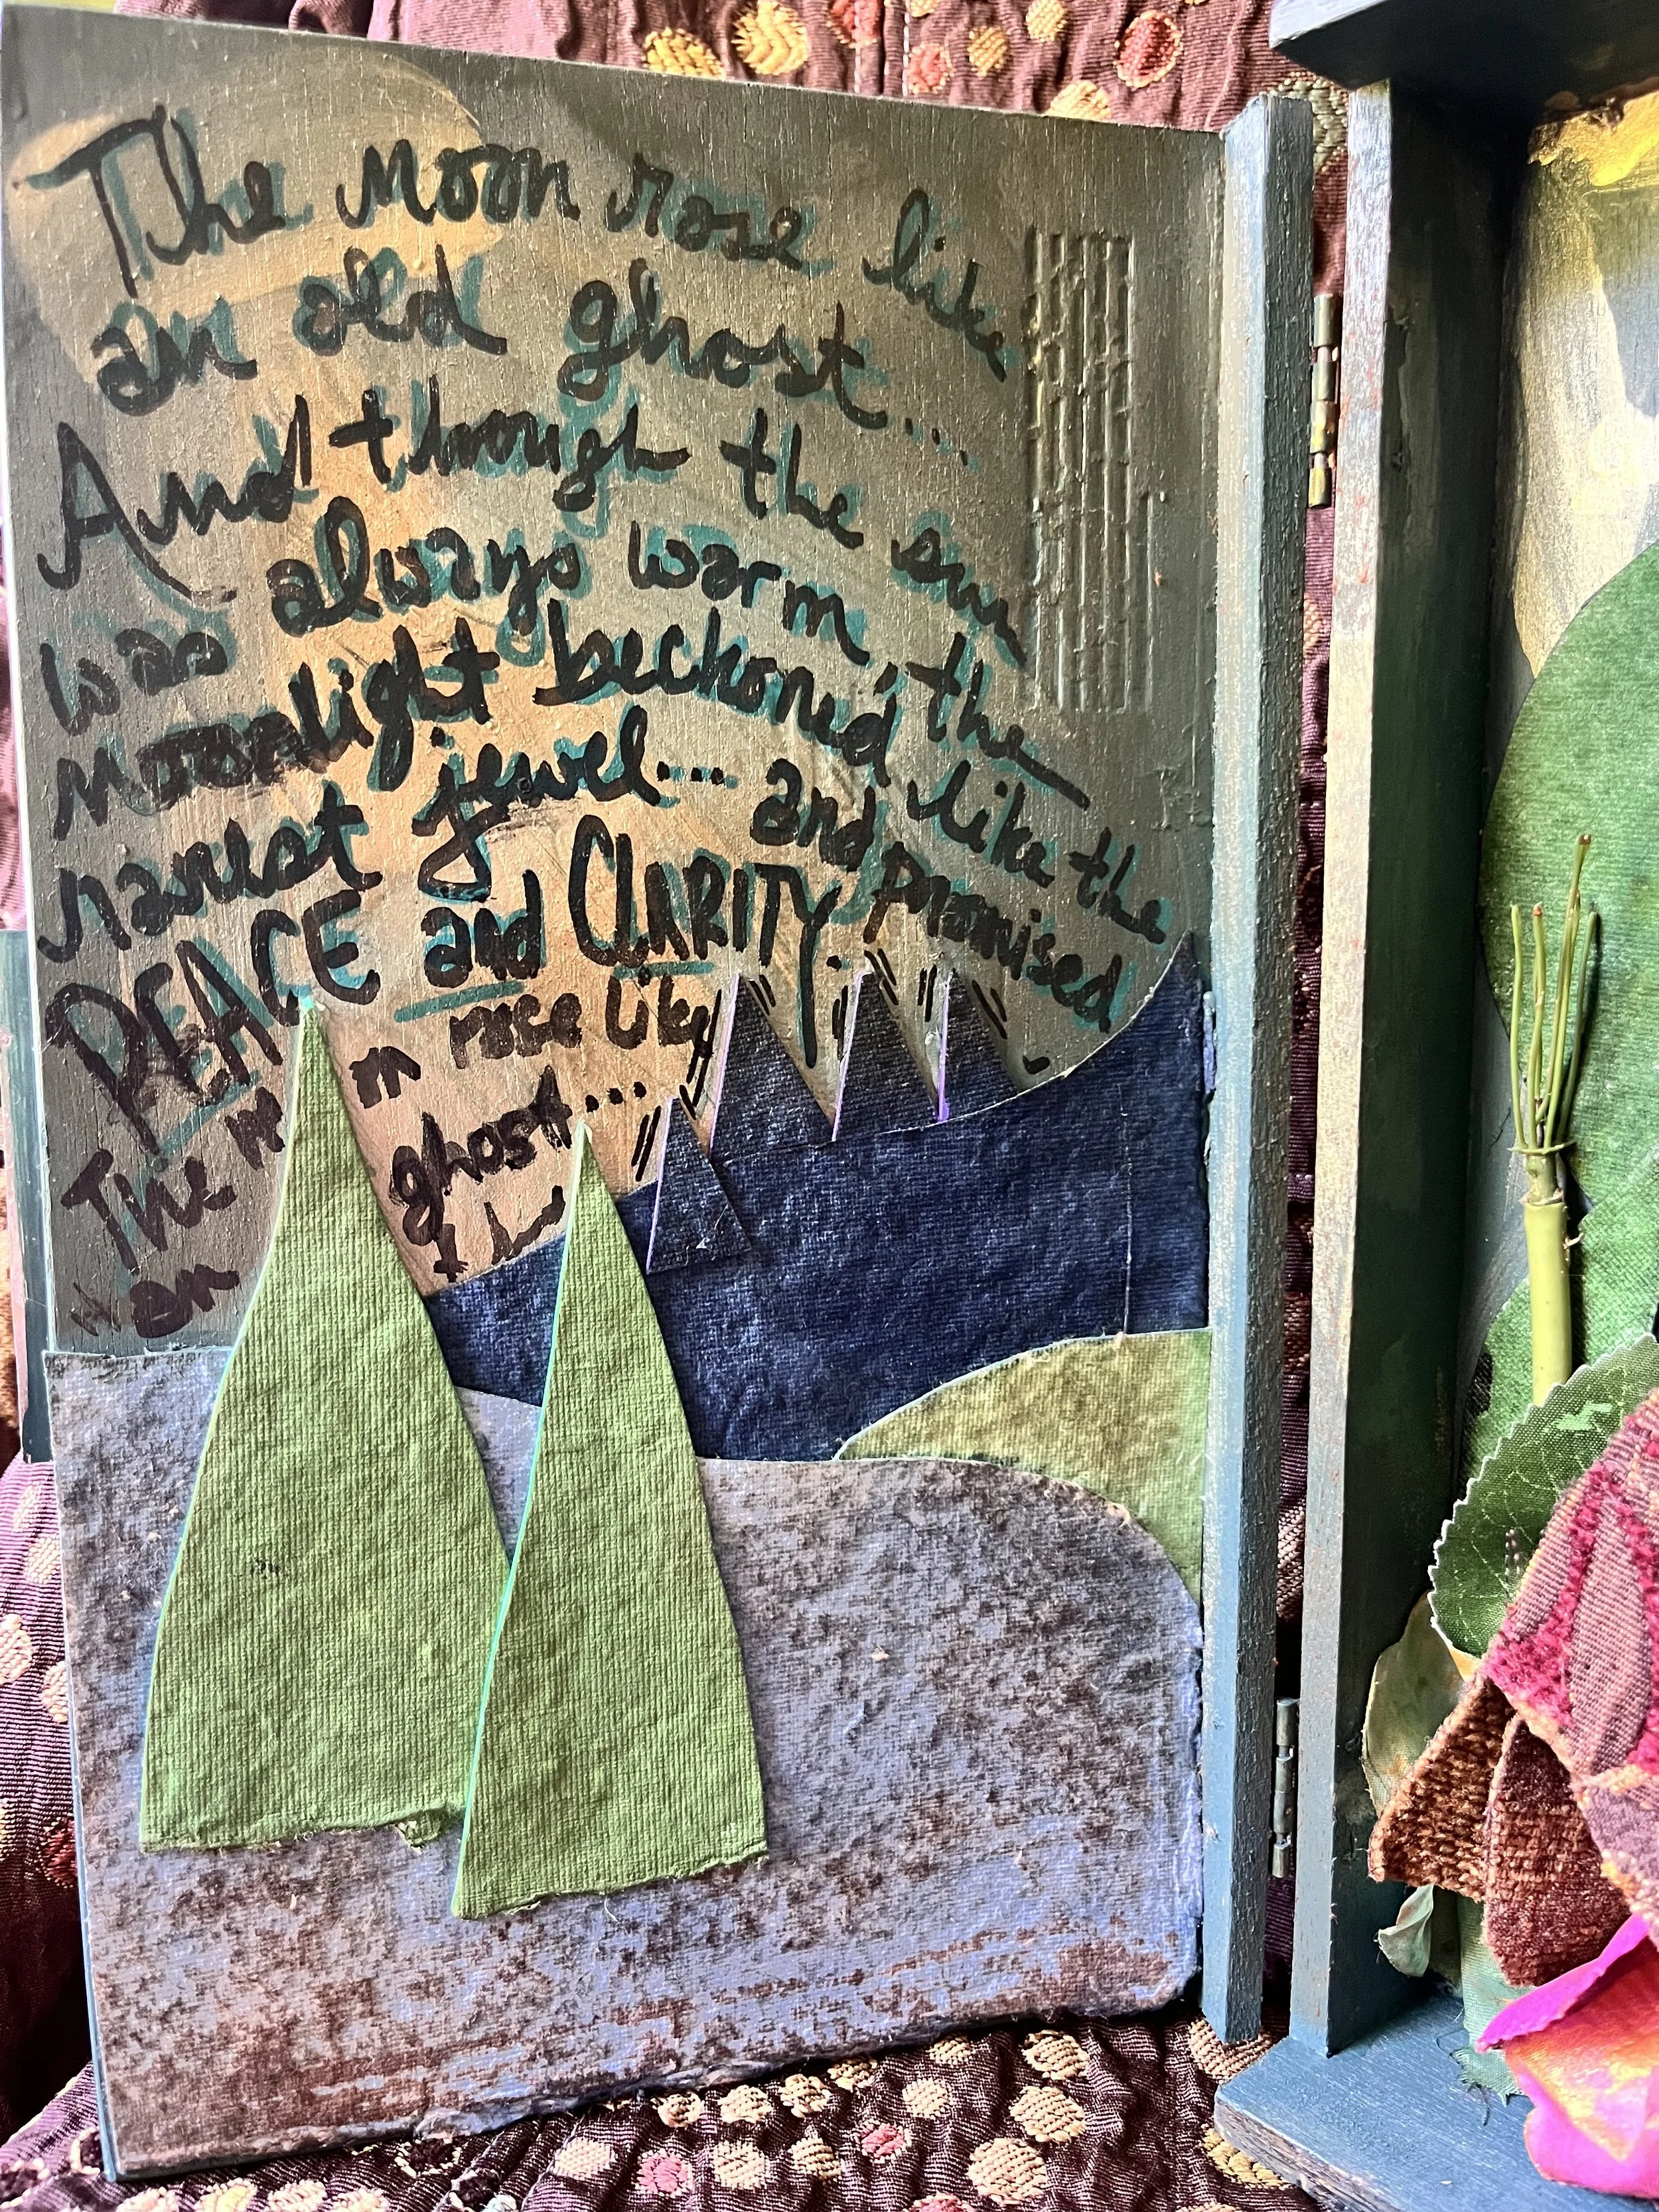 The Moon rose like
an old ghost...
And through the sun
was always warm, the
moonlight beckoned like the
rarest jewel... and promised
PEACE and CLARITY.
The m n rose like
an ghost...